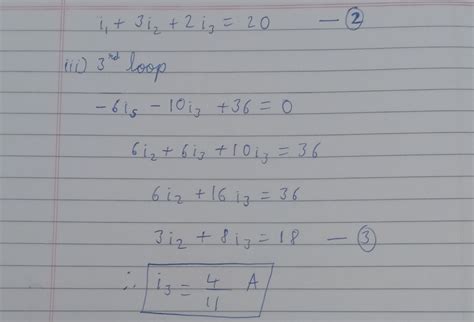 i₁ + 3i₂ + 2i₃ = 20 — ②
iii) 3rd loop
-6i₅ - 10i₃ + 36 = 0
6i₂ + 6i₃ + 10i₃ = 36
6i₂ + 16i₃ = 36
3i₂ + 8i₃ = 18 — ③
∴ i₃ = 4/11 A